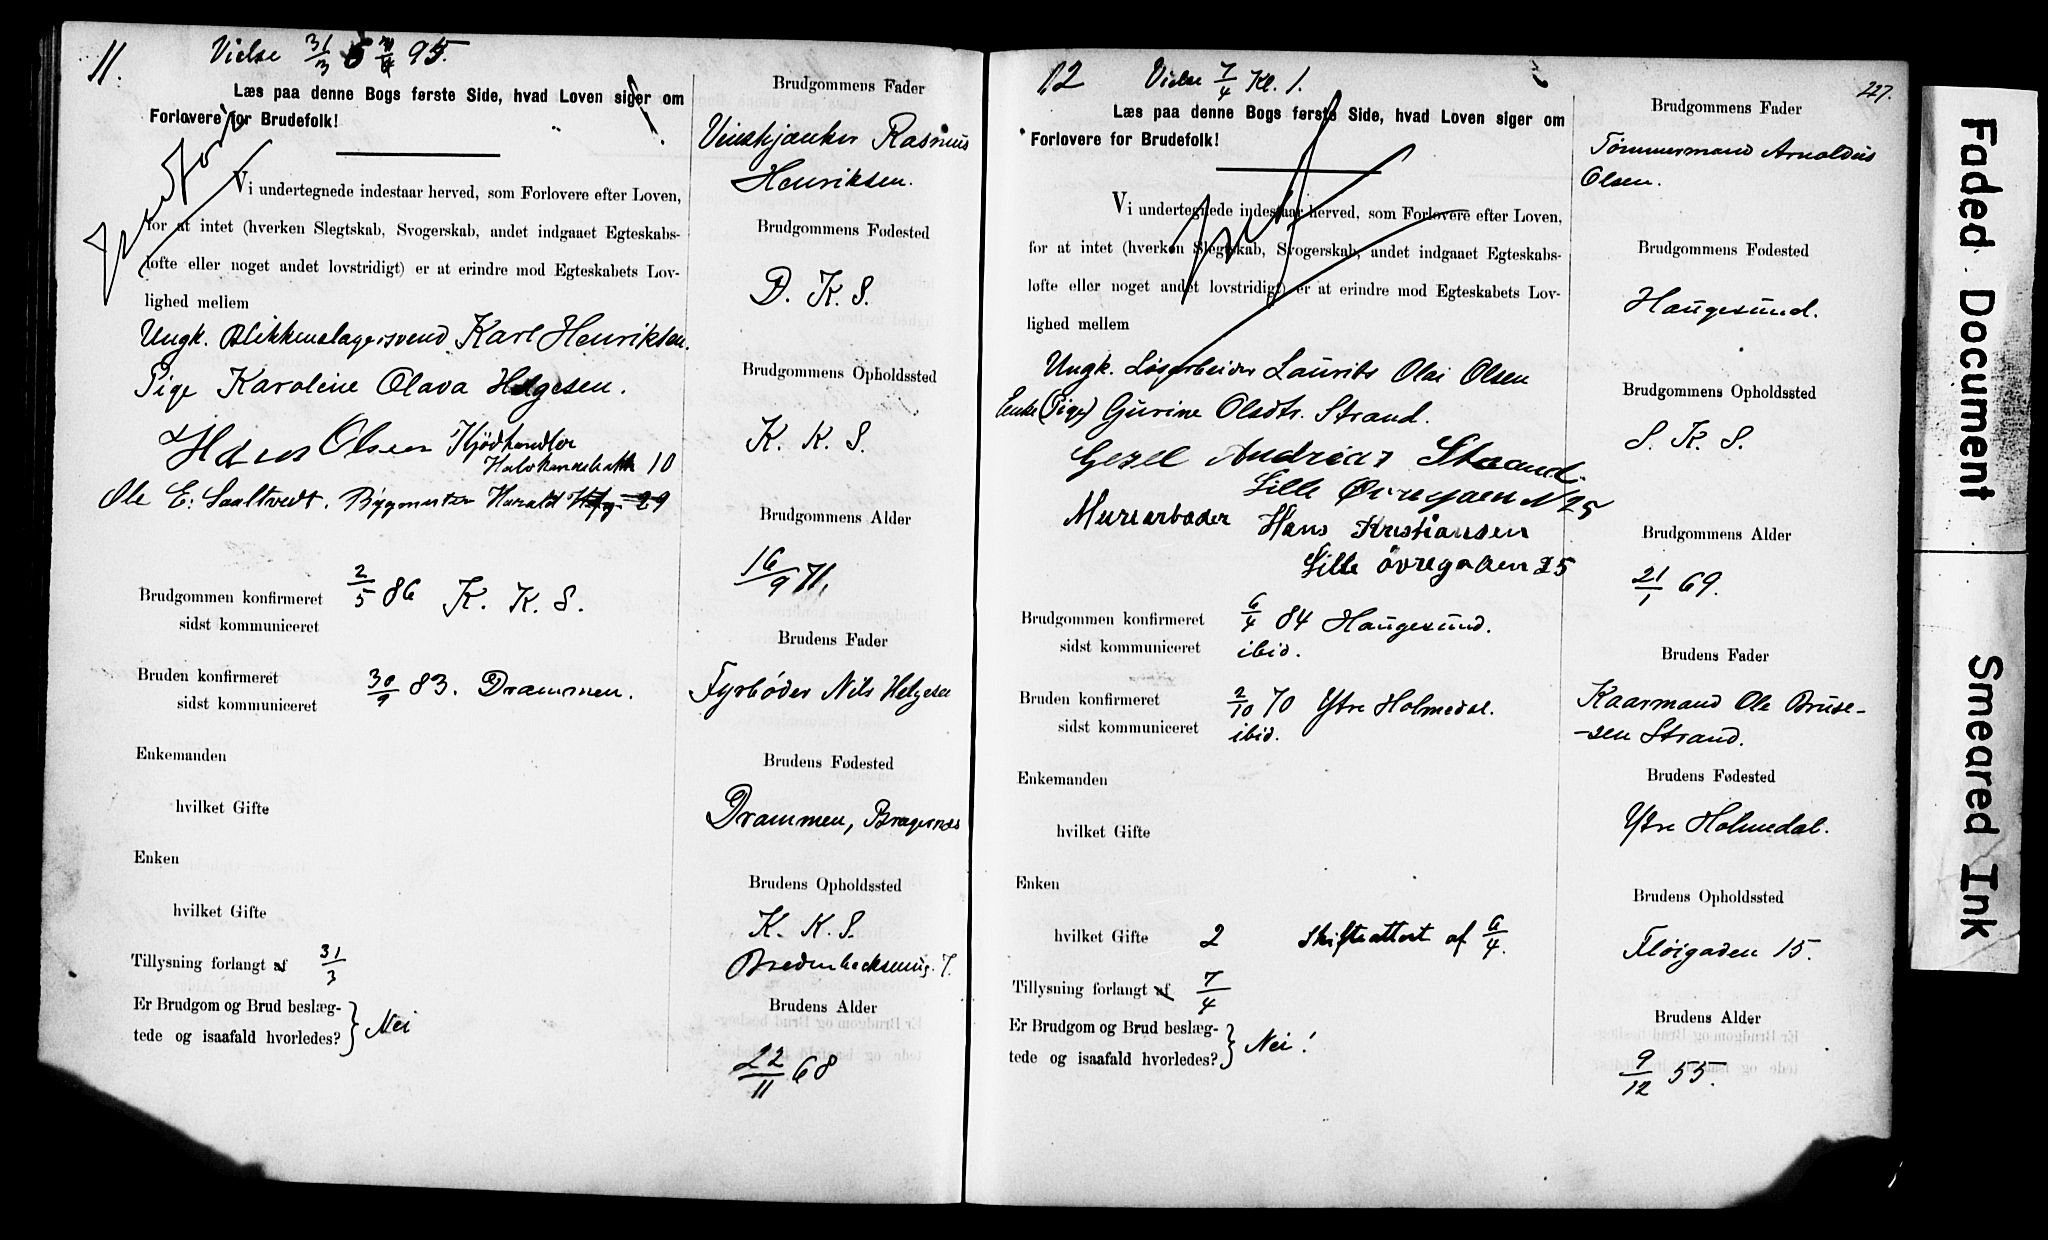 11.
Vielse 31/3 6 95.
Læs paa denne Bogs første Side, hvad Loven siger om
Forlovere for Brudefolk!
Vi undertegnede indestaar herved, som Forlovere efter Loven,
for at intet (hverken Slegtskab, Svogerskab, andet indgaaet Egteskabs-
løfte eller noget andet lovstridigt) er at erindre mod Egteskabets Lov-
lighed mellem
Ungk. Blikkenslagersvend Karl Henriksen.
Pige Karoline Olava Helgesen.
Hans Olsen Kjødhandler
10
Ole E: Saaltvedt. Bygmester Harald Hfg. 29
Brudgommen konfirmeret 2/5 86 K. K. S.
sidst kommuniceret
Bruden konfirmeret 30/9 83. Drammen.
sidst kommuniceret
Enkemanden
hvilket Gifte
Enken
hvilket Gifte
Tillysning forlangt af 31/3
Er Brudgom og Brud beslæg-
tede og isaafald hvorledes? } Nei
Brudgommens Fader
Vinskjænker Rasmus
Henriksen.
Brudgommens Fødested
D. K. S.
Brudgommens Opholdssted
K. K. S.
Brudgommens Alder
16/9 71,
Brudens Fader
Fyrbøder Nils Helgesen
Brudens Fødested
Drammen, Bragernes
Brudens Opholdssted
K. K. S.
7.
Brudens Alder
22/11 68
12
Vielse 7/4 Kl. 1.
227.
Læs paa denne Bogs første Side, hvad Loven siger om
Forlovere for Brudefolk!
Vi undertegnede indestaar herved, som Forlovere efter Loven,
for at intet (hverken Slegtskab, Svogerskab, andet indgaaet Egteskabs-
løfte eller noget andet lovstridigt) er at erindre mod Egteskabets Lov-
lighed mellem
Ungk. Løsarbeider Laurits Olai Olsen
Enke (Pige) Gurine Olsdtr. Strand.
Gesel Andreas Strand.
Lille Øvregaden N 25
Murerarbeder Hans Kristiansen
Lille övregaden 25
Brudgommen konfirmeret 6/4 84 Haugesund.
sidst kommuniceret ibid.
Bruden konfirmeret 2/10 70 Ytre Holmedal.
sidst kommuniceret ibid.
Enkemanden
hvilket Gifte
Enken
hvilket Gifte 2 Skifteattest af 6/4.
Tillysning forlangt af 7/4
Er Brudgom og Brud beslæg-
tede og isaafald hvorledes? } Nei!
Brudgommens Fader
Tømmermand Arnoldus
Olsen.
Brudgommens Fødested
Haugesund.
Brudgommens Opholdssted
S. K. S.
Brudgommens Alder
21/1 69.
Brudens Fader
Kaarmand Ole Bruse-
-sen Strand.
Brudens Fødested
Ytre Holmedal.
Brudens Opholdssted
Fløigaden 15.
Brudens Alder
9/12 55.
Faded Document
Smeared Ink